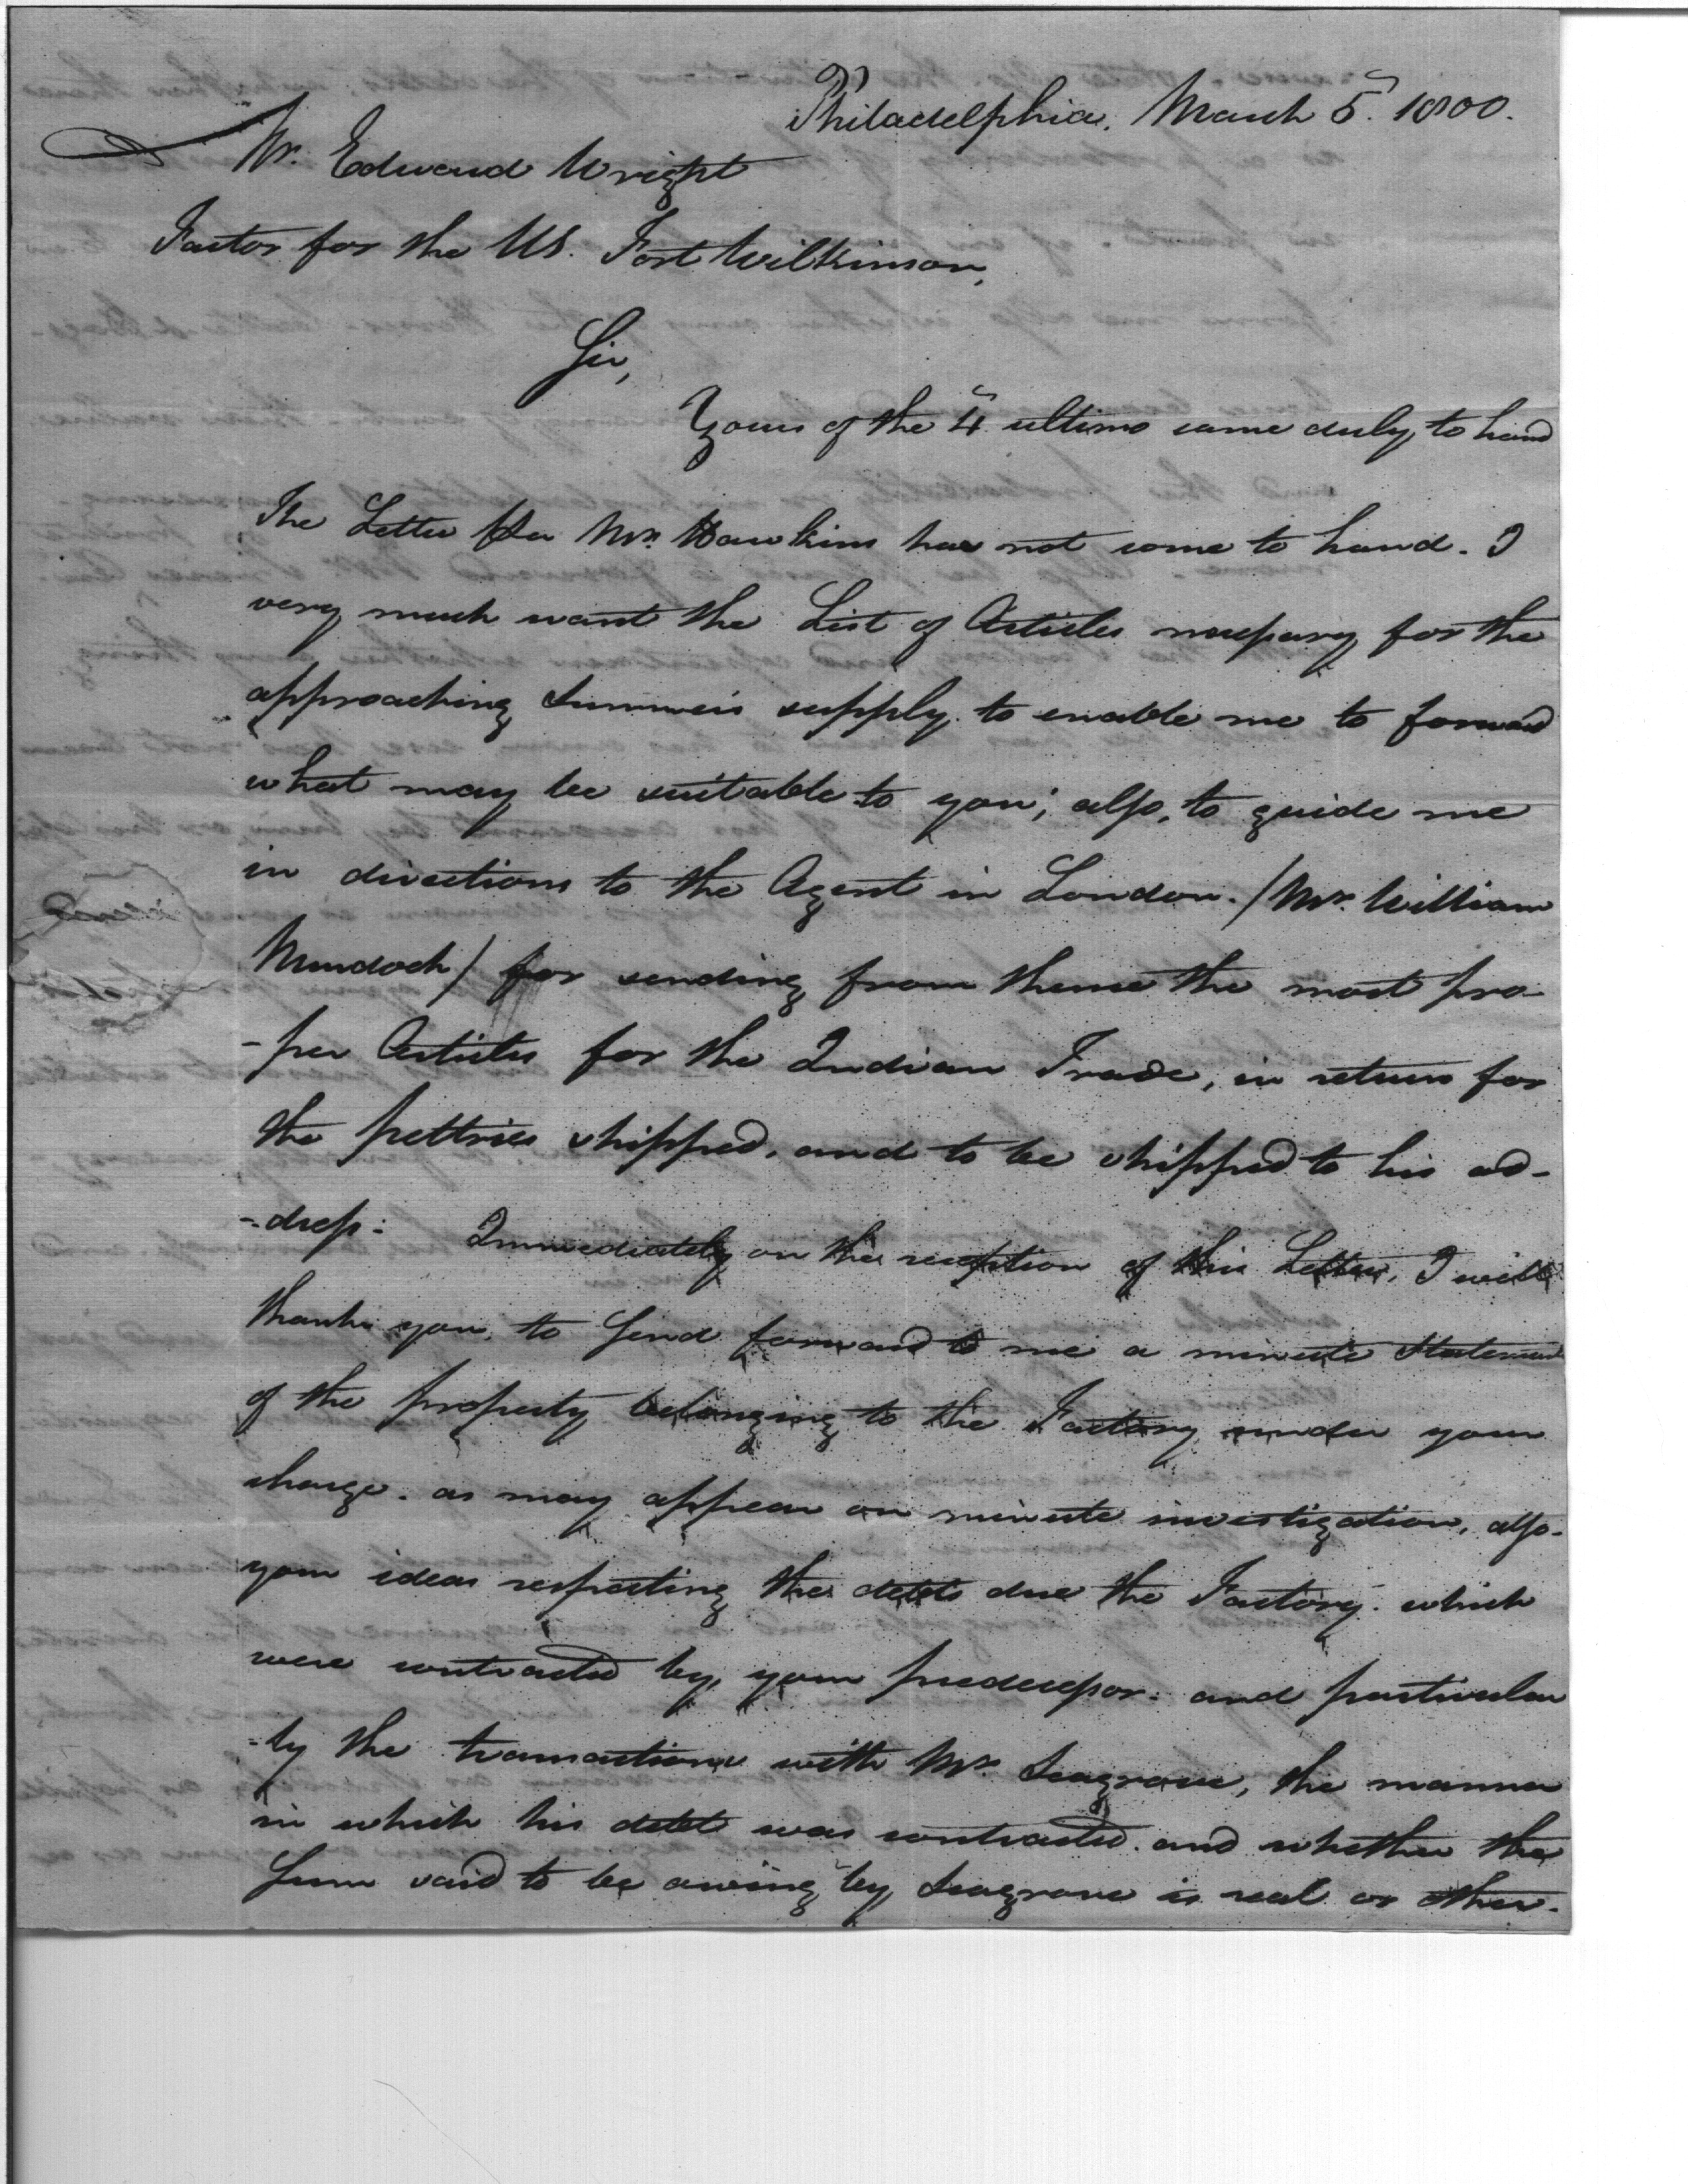 Philadelphia, March 5. 1800.
Mr. Edward Wright
Factor for the US. Fort Wilkinson,
Sir,
Yours of the 4 ultimo came duly to hand
The Letter Per Mr. Hawkins has not come to hand. I
very much want the List of Articles necessary for the
approaching Summers supply, to enable me to forward
what may be suitable to you; also, to guide me
in directions to the Agent in London. /Mr. William
Murdoch/ for sending from thence the most pro-
-per Articles for the Indian Trade, in return for
the peltries shipped, and to be shipped to his ad-
-dress: Immediately on the reception of this Letter, I will
thank you to Send forward to me a minute Statement
of the property belonging to the Factory under your
charge. as may appear on minute investigation, also-
your ideas respecting the debts due the Factory. which
were contracted by your predecessor: and particular
-ly the transactions with Mr. Seagrove, the manner
in which his debt was contracted. and whether the
Sum said to be owing by Seagrove is real or other-